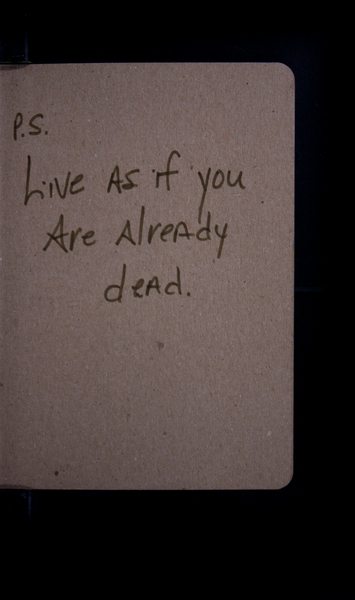 P.S.
Live As if you
Are AlreAdy
deAd.